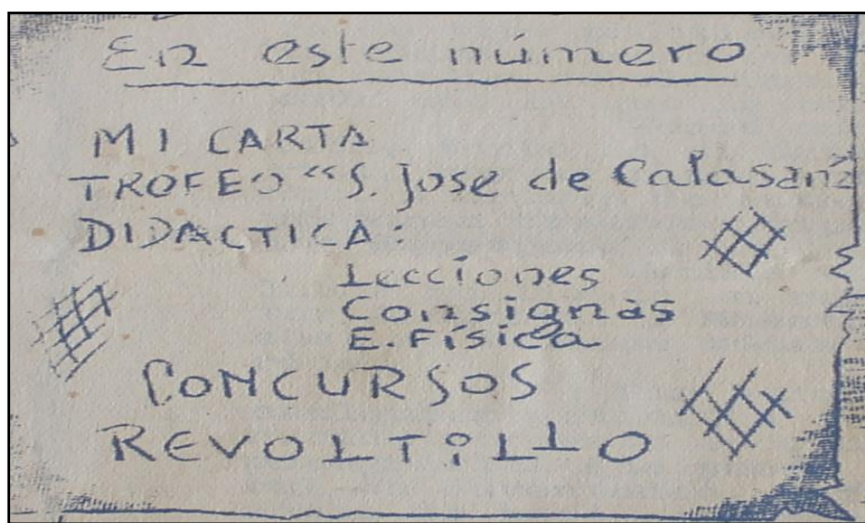 En este número
MI CARTA
TROFEO "S. José de Calasanz
DIDACTICA:
Lecciones
Consignas
E. Física
CONCURSOS
REVOLTiLLO